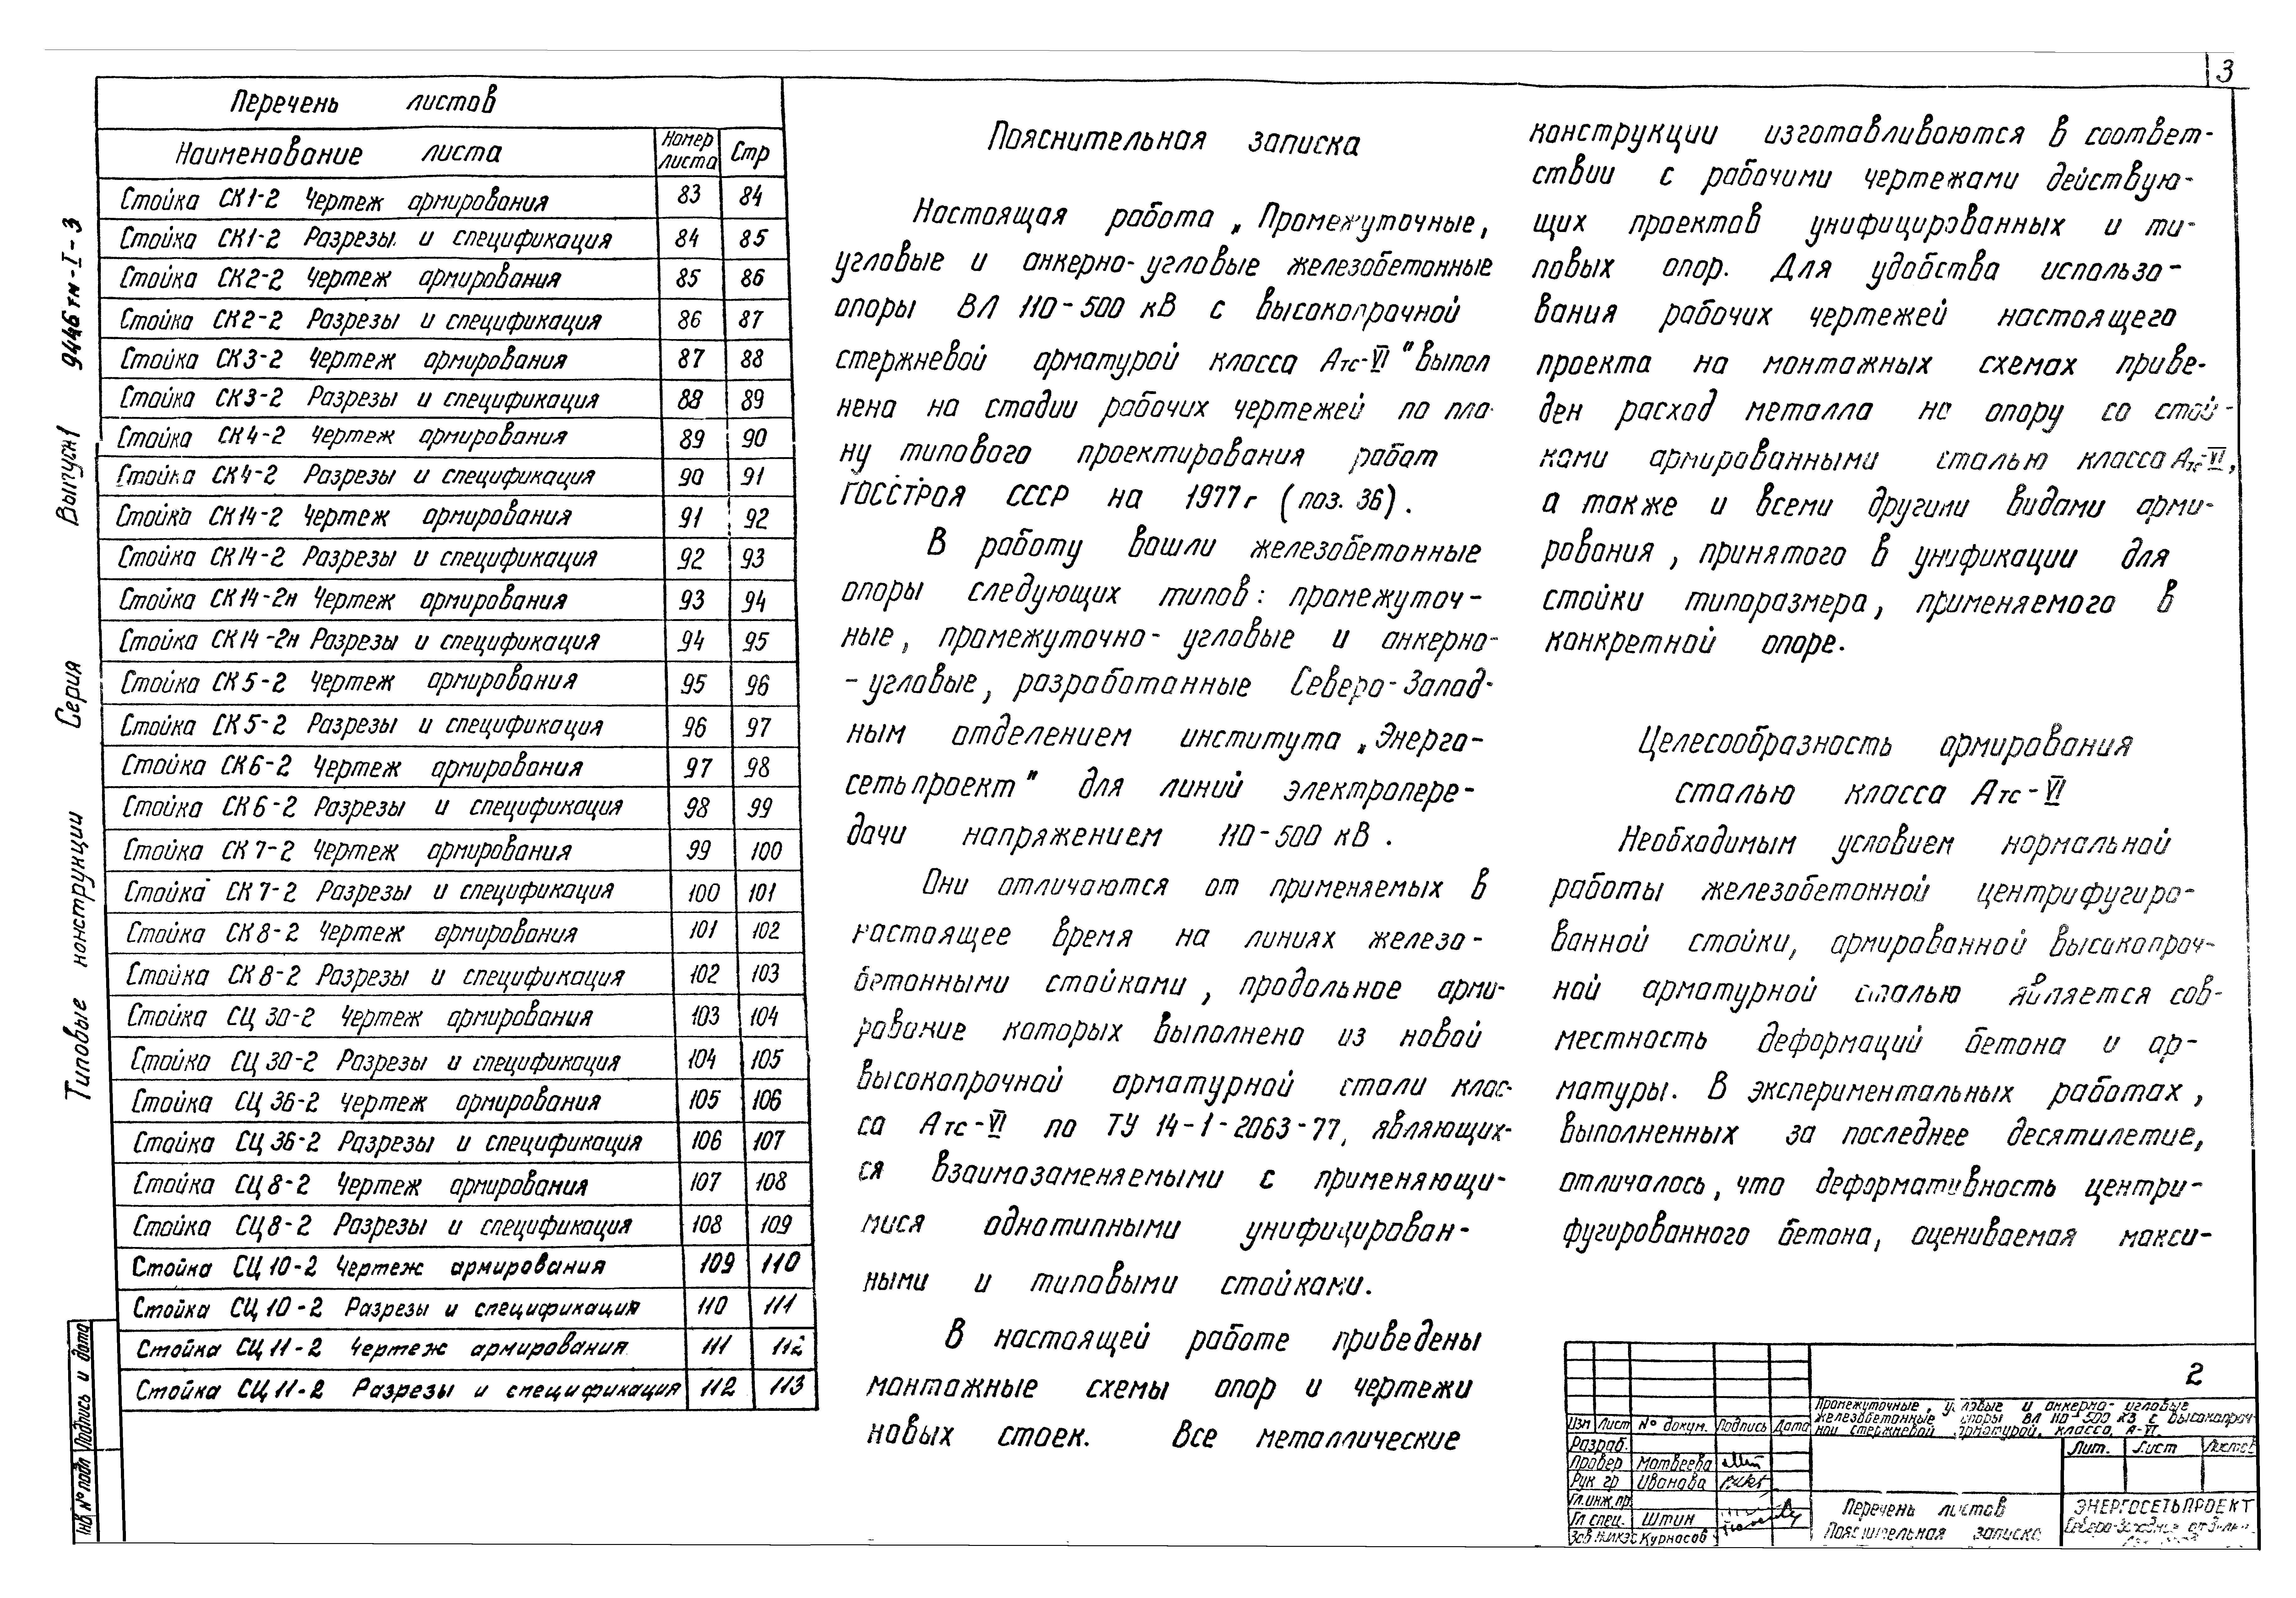 3
Перечень листов
Наименование листа Номер листа Стр
Стойка СК1-2 Чертеж армирования 83 84
Стойка СК1-2 Разрезы и спецификация 84 85
Стойка СК2-2 Чертеж армирования 85 86
Стойка СК2-2 Разрезы и спецификация 86 87
Стойка СК3-2 Чертеж армирования 87 88
Стойка СК3-2 Разрезы и спецификация 88 89
Стойка СК4-2 Чертеж армирования 89 90
Стойка СК4-2 Разрезы и спецификация 90 91
Стойка СК14-2 Чертеж армирования 91 92
Стойка СК14-2 Разрезы и спецификация 92 93
Стойка СК14-2н Чертеж армирования 93 94
Стойка СК14-2н Разрезы и спецификация 94 95
Стойка СК5-2 Чертеж армирования 95 96
Стойка СК5-2 Разрезы и спецификация 96 97
Стойка СК6-2 Чертеж армирования 97 98
Стойка СК6-2 Разрезы и спецификация 98 99
Стойка СК7-2 Чертеж армирования 99 100
Стойка СК7-2 Разрезы и спецификация 100 101
Стойка СК8-2 Чертеж армирования 101 102
Стойка СК8-2 Разрезы и спецификация 102 103
Стойка СЦ30-2 Чертеж армирования 103 104
Стойка СЦ30-2 Разрезы и спецификация 104 105
Стойка СЦ36-2 Чертеж армирования 105 106
Стойка СЦ36-2 Разрезы и спецификация 106 107
Стойка СЦ8-2 Чертеж армирования 107 108
Стойка СЦ8-2 Разрезы и спецификация 108 109
Стойка СЦ10-2 Чертеж армирования 109 110
Стойка СЦ10-2 Разрезы и спецификация 110 111
Стойка СЦ11-2 Чертеж армирования 111 112
Стойка СЦ11-2 Разрезы и спецификация 112 113
Типовые конструкции Серия Выпуск 1 9446тм-I-3
Инв № подл Подпись и дата
Пояснительная записка
Настоящая работа „Промежуточные,
угловые и анкерно-угловые железобетонные
опоры ВЛ 110-500 кВ с высокопрочной
стержневой арматурой класса Атс-VI" выпол
нена на стадии рабочих чертежей по пла-
ну типового проектирования работ
ГОССТРОЯ СССР на 1977г (поз. 36).
В работу вошли железобетонные
опоры следующих типов: промежуточ-
ные, промежуточно-угловые и анкерно-
-угловые, разработанные Северо-Запад-
ным отделением института „Энерго-
сетьпроект" для линий электропере-
дачи напряжением 110-500 кВ.
Они отличаются от применяемых в
настоящее время на линиях железо-
бетонными стойками, продольное арми-
рование которых выполнено из новой
высокопрочной арматурной стали клас-
са Атс-VI по ТУ 14-1-2063-77, являющих-
ся взаимозаменяемыми с применяющи-
мися однотипными унифицирован-
ными и типовыми стойками.
В настоящей работе приведены
монтажные схемы опор и чертежи
новых стоек. Все металлические
конструкции изготавливаются в соответ-
ствии с рабочими чертежами действую-
щих проектов унифицированных и ти-
повых опор. Для удобства использо-
вания рабочих чертежей настоящего
проекта на монтажных схемах приве-
ден расход металла на опору со стой-
ками армированными сталью класса Атс-VI,
а также и всеми другими видами арми-
рования, принятого в унификации для
стойки типоразмера, применяемого в
конкретной опоре.
Целесообразность армирования
сталью класса Атс-VI
Необходимым условием нормальной
работы железобетонной центрифугиро-
ванной стойки, армированной высокопроч-
ной арматурной сталью является сов-
местность деформаций бетона и ар-
матуры. В экспериментальных работах,
выполненных за последнее десятилетие,
отличалось, что деформативность центри-
фугированного бетона, оцениваемая макси-
2
Промежуточные, угловые и анкерно-угловые
железобетонные опоры ВЛ 110-500 кВ с высокопроч-
ной стержневой арматурой, класса А-VI.
Изм Лист № докум. Подпись Дата
Разраб.
Провер Матвеева
Рук гр Иванова
Гл.инж.пр.
Гл спец. Штин
Курносов
Лит. Лист Листов
Перечень листов
Пояснительная записка
ЭНЕРГОСЕТЬПРОЕКТ
Северо-Западное отделен.